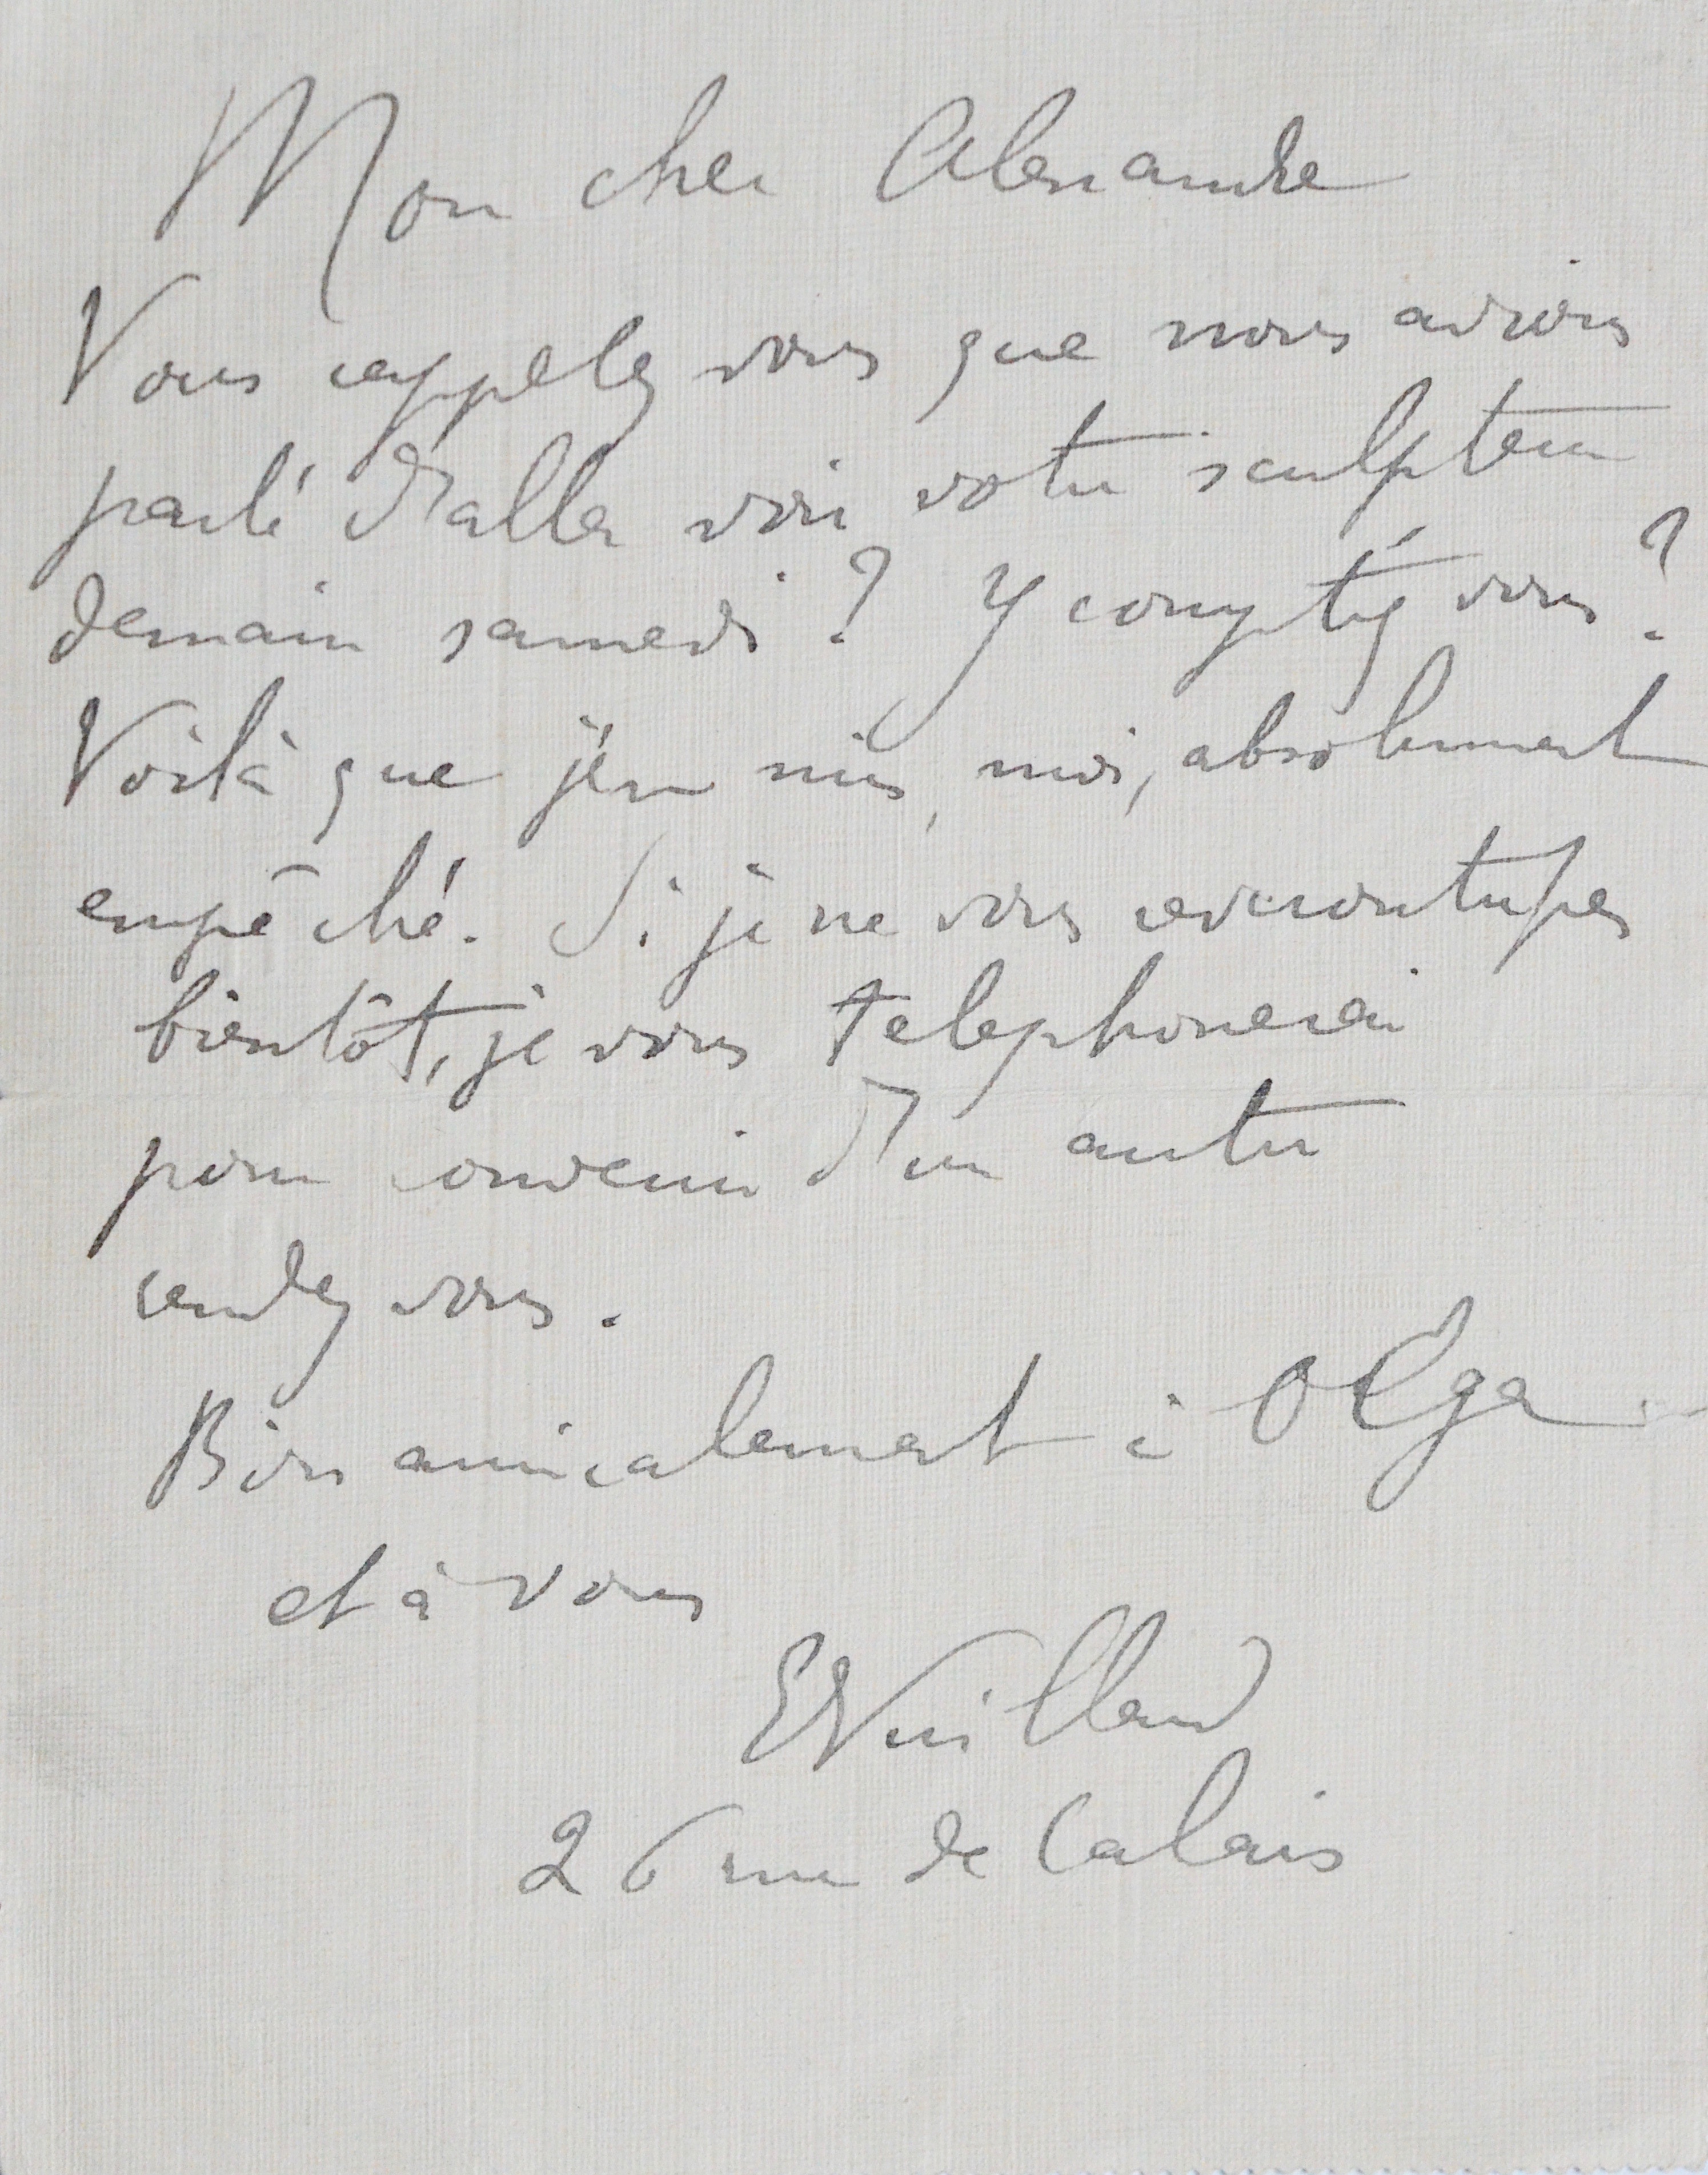 Mon cher Alexandre
Vous rappelez vous que nous avions
parlé d'aller voir votre sculpteur
demain samedi ? Y comptez vous ?
Voilà que j'en suis, moi, absolument
empêché. Si je ne vous rencontre pas
bientôt, je vous telephonerai
pour convenir d'un autre
rendez vous.
Bien amicalement à Olga
et à vous
EVuillard
26 rue de Calais